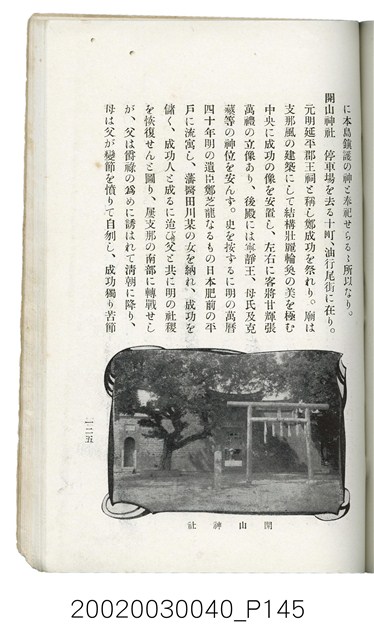 に本島鎮護の神と奉祀せらるゝ所以なり。
開山神社 停車場を去る十町、油行尾街に在り。
元明延平郡王祠と稱し鄭成功を祭れり。廟は
支那風の建築にして結構壯麗輪奐の美を極む
中央に成功の像を安置し、左右に客將甘輝張
萬禮の立像あり、後殿には寧靜王、母氏及克
𡒉等の神位を安んず。史を按ずるに明の萬曆
四十年明の遺臣鄭芝龍なるもの日本肥前の平
戶に流寓し、藩醫田川某の女を納れ、成功を
儲く、成功人と成るに迨び父と共に明の社稷
を恢復せんと圖り、屡支那の南部に轉戰せし
が、父は爵祿の爲めに誘はれて淸朝に降り、
母は父が變節を憤りて自刎し、成功獨り苦節
開山神社
一二五
20020030040_P145